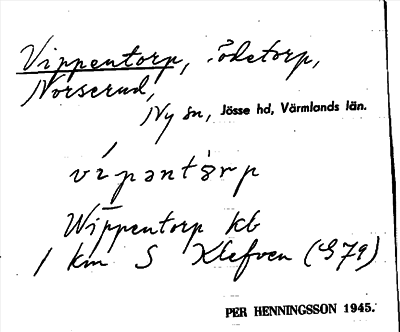 Vippentorp, ödetorp,
Norserud,
Ny sn, Jösse hd, Värmlands län.
vípəntòrp
Wippentorp kb
1 km S Klefven (G79)
PER HENNINGSSON 1945.